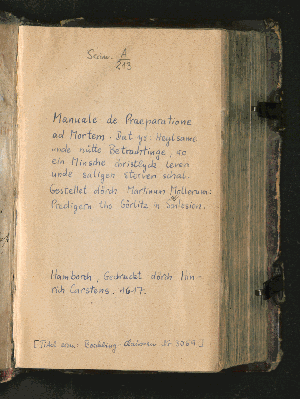 Scrin. A/213
Manuale de Praeparatione
ad Mortem. Dat ys: Heylsame
unde nütte Betrachtinge, wo
ein Minsche Christlyck leven
unde saligen sterven schal.
Gestellet dörch Martinum Mollerum:
Predigern tho Görlitz in Slesien.
Hamborch, Gedrucket dörch Hin-
rich Carstens. 1617.
[Titel nach: Borchling-Claussen Nr. 3069]